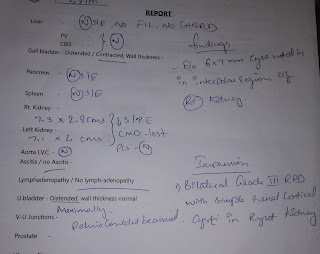 REPORT
Liver - (N) S/E, NO FIL, NO SHERD
PV
CBD } (N)
Gall bladder - Distended / Contracted, Wall thickness-
Findings
- E/o 6x7 mm cyst noted in
in interpolar regions of
Rt Kidney.
Pancreas - (N) S/E
Spleen - (N) S/E
Rt. Kidney -
7.3 x 2.8 cms } S/TE
Left Kidney - CMD - lost
7.1 x 4 cms PCS - (N)
Aorta I.V.C - (N)
Ascitis / no Ascitis -
Lymphadenopathy / No lymph-adenopathy
Impression
1) Bilateral Grade III RPD
with simple renal cortical
cyst in Right Kidney
U bladder - Distended, wall thickness normal
Minimally.
V-U Junctions - Pelvis couldn't be assessed.
Prostate -